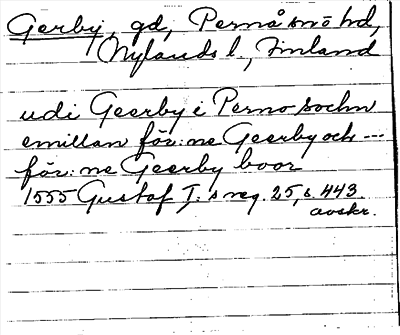 Gerby, gd, Pernå snö hd,
Nylands l., Finland
udi Geerby i Perno sochn
emillan för:ne Geerby och ---
för:ne Geerby boor
1555 Gustaf I:s reg. 25, s. 443.
avskr.